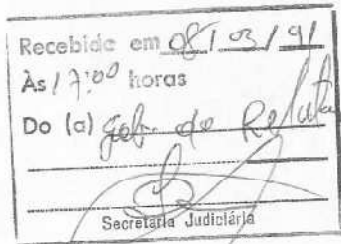 Recebido em 08/03/91
Às 17:00 horas
Do (a) gab. do Relator
Secretaria Judiciária